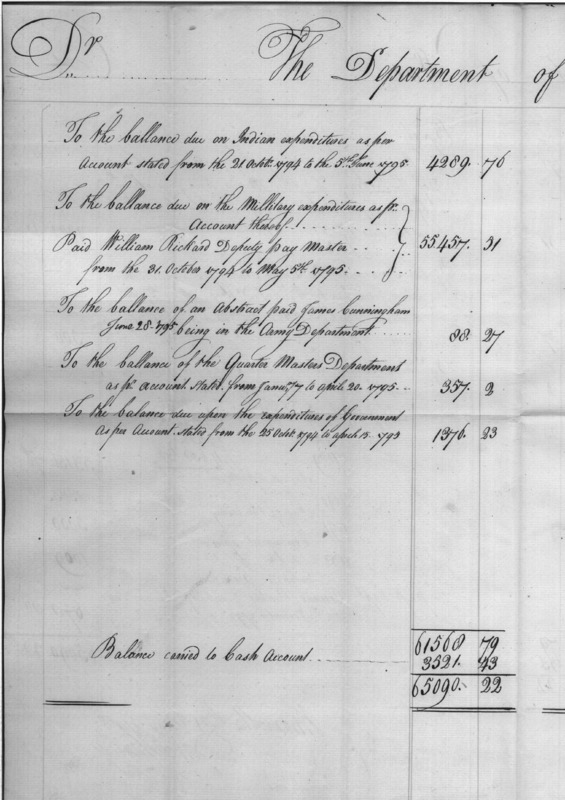 Dr The Department of
To the ballance due on Indian expenditures as per
Account stated from the 21 Octr. 1794 to the 5th. June 1795 4289. 76
To the ballance due on the Millitary expenditures as pr.
Account thereof
Paid William Rickard Deputy pay Master 55457. 31
from the 31. October 1794 to May 5th. 1795
To the ballance of an Abstract paid James Cunningham
June 28. 1795 being in the Army Department 88. 27
To the ballance of the Quarter Masters Department
as pr. account Statd. from Janu,y 7 to april 20. 1795 357. 2
To the balance due upon the expenditures of Government
As per Account stated from the 25 Octr. 1794 to april 15. 1795 1376. 23
61568 79
Balance carried to Cash Account 3521. 43
65090. 22